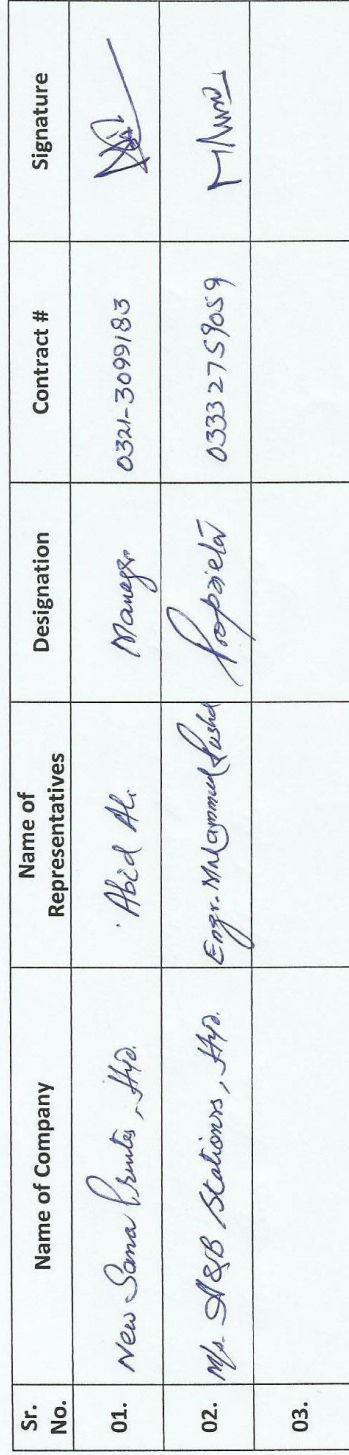 Sr. No. Name of Company Name of Representatives Designation Contract # Signature
01. New Sana Printes, Hyd. Abid Ali. Manager 0321-3099183
02. M/s. A&B Stationrs, Hyd. Engr. Muhammad Proprietor 03332759059
03.